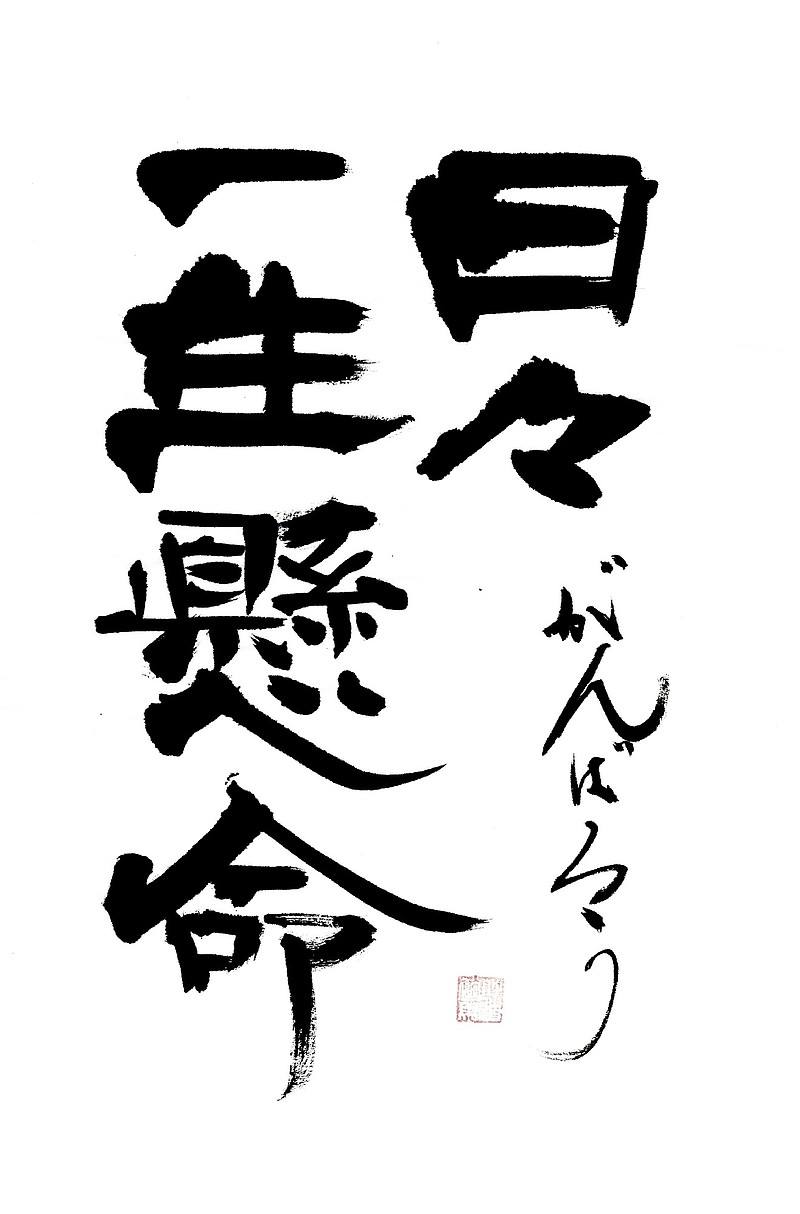 日々
がんばろう
一生懸命